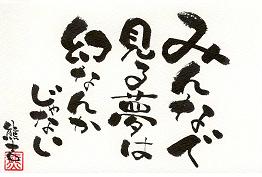 みんなで
見る夢は
幻なんか
じゃない